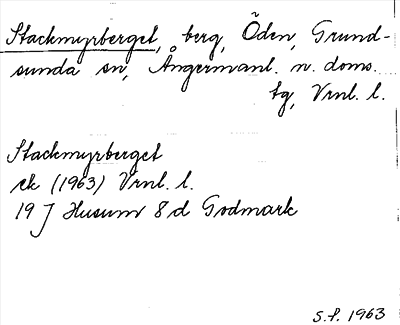 Stackmyrberget, berg, Öden, Grund-
sunda sn, Ångermanl. n. doms.
tg, Vrnl. l.
Stackmyrberget
ek (1963) Vrnl. l.
19 J Husum 8 d Godmark
S.f. 1963